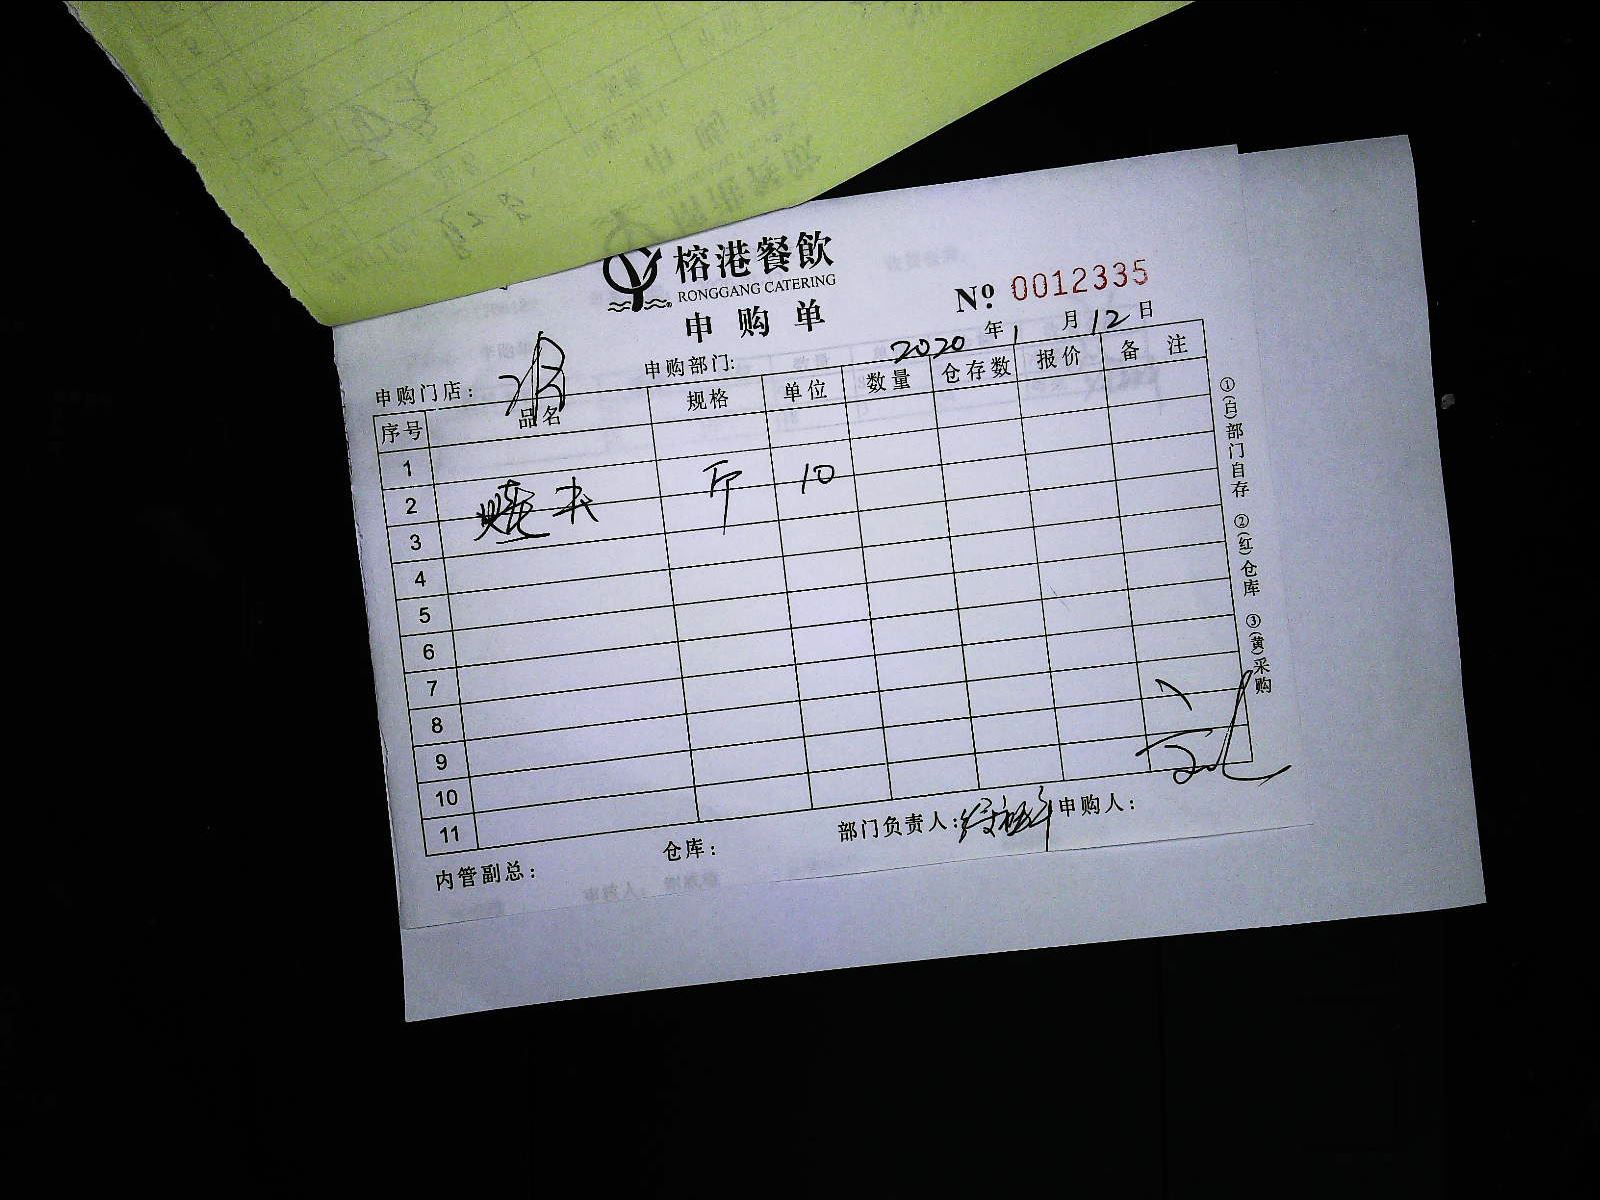 榕港餐飲
RONGGANG CATERING
申购单
Nº 0012335
2020 年 1 月 12 日
申购门店： 申购部门:
序号 品名 规格 单位 数量 仓存数 报价 备注
1
2 斤 10
3
4
5
6
7
8
9
10
11
内管副总： 仓库： 部门负责人： 申购人：
①(白)部门自存 ②(红)仓库 ③(黄)采购